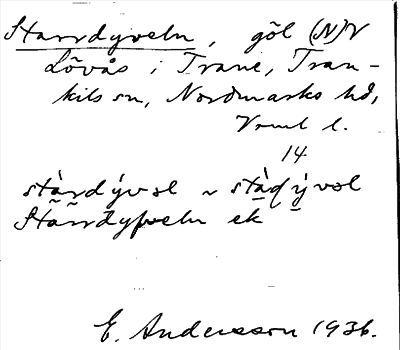 Starrdyveln, göl (N)V
Lövås i Trane, Tran-
kils sn, Nordmarks hd,
Vrml l.
14
stàrdývəl ~ stàɖývəl
Starrdyfveln ek
E. Andersson 1936.